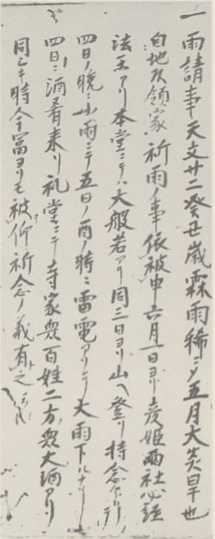 一雨請事天文廿二癸丑歳霖雨稀ニシテ五月大炎旱也
自地衣領家祈雨ノ事依被申六月一日ヨリ彦姫両社必経
法王アリ本堂ニテハ大般若アリ同三日ヨリ山ヘ登リ持念アリ
四日ノ晩ニ小雨ニテ五日ノ酉ノ時ニ雷電アリテ大雨下ルナリ
四日ニ酒肴来リ礼堂ニテ寺家衆百姓二方衆大酒アリ
同乙年時今冨ヨリモ被仰祈念ノ義有之